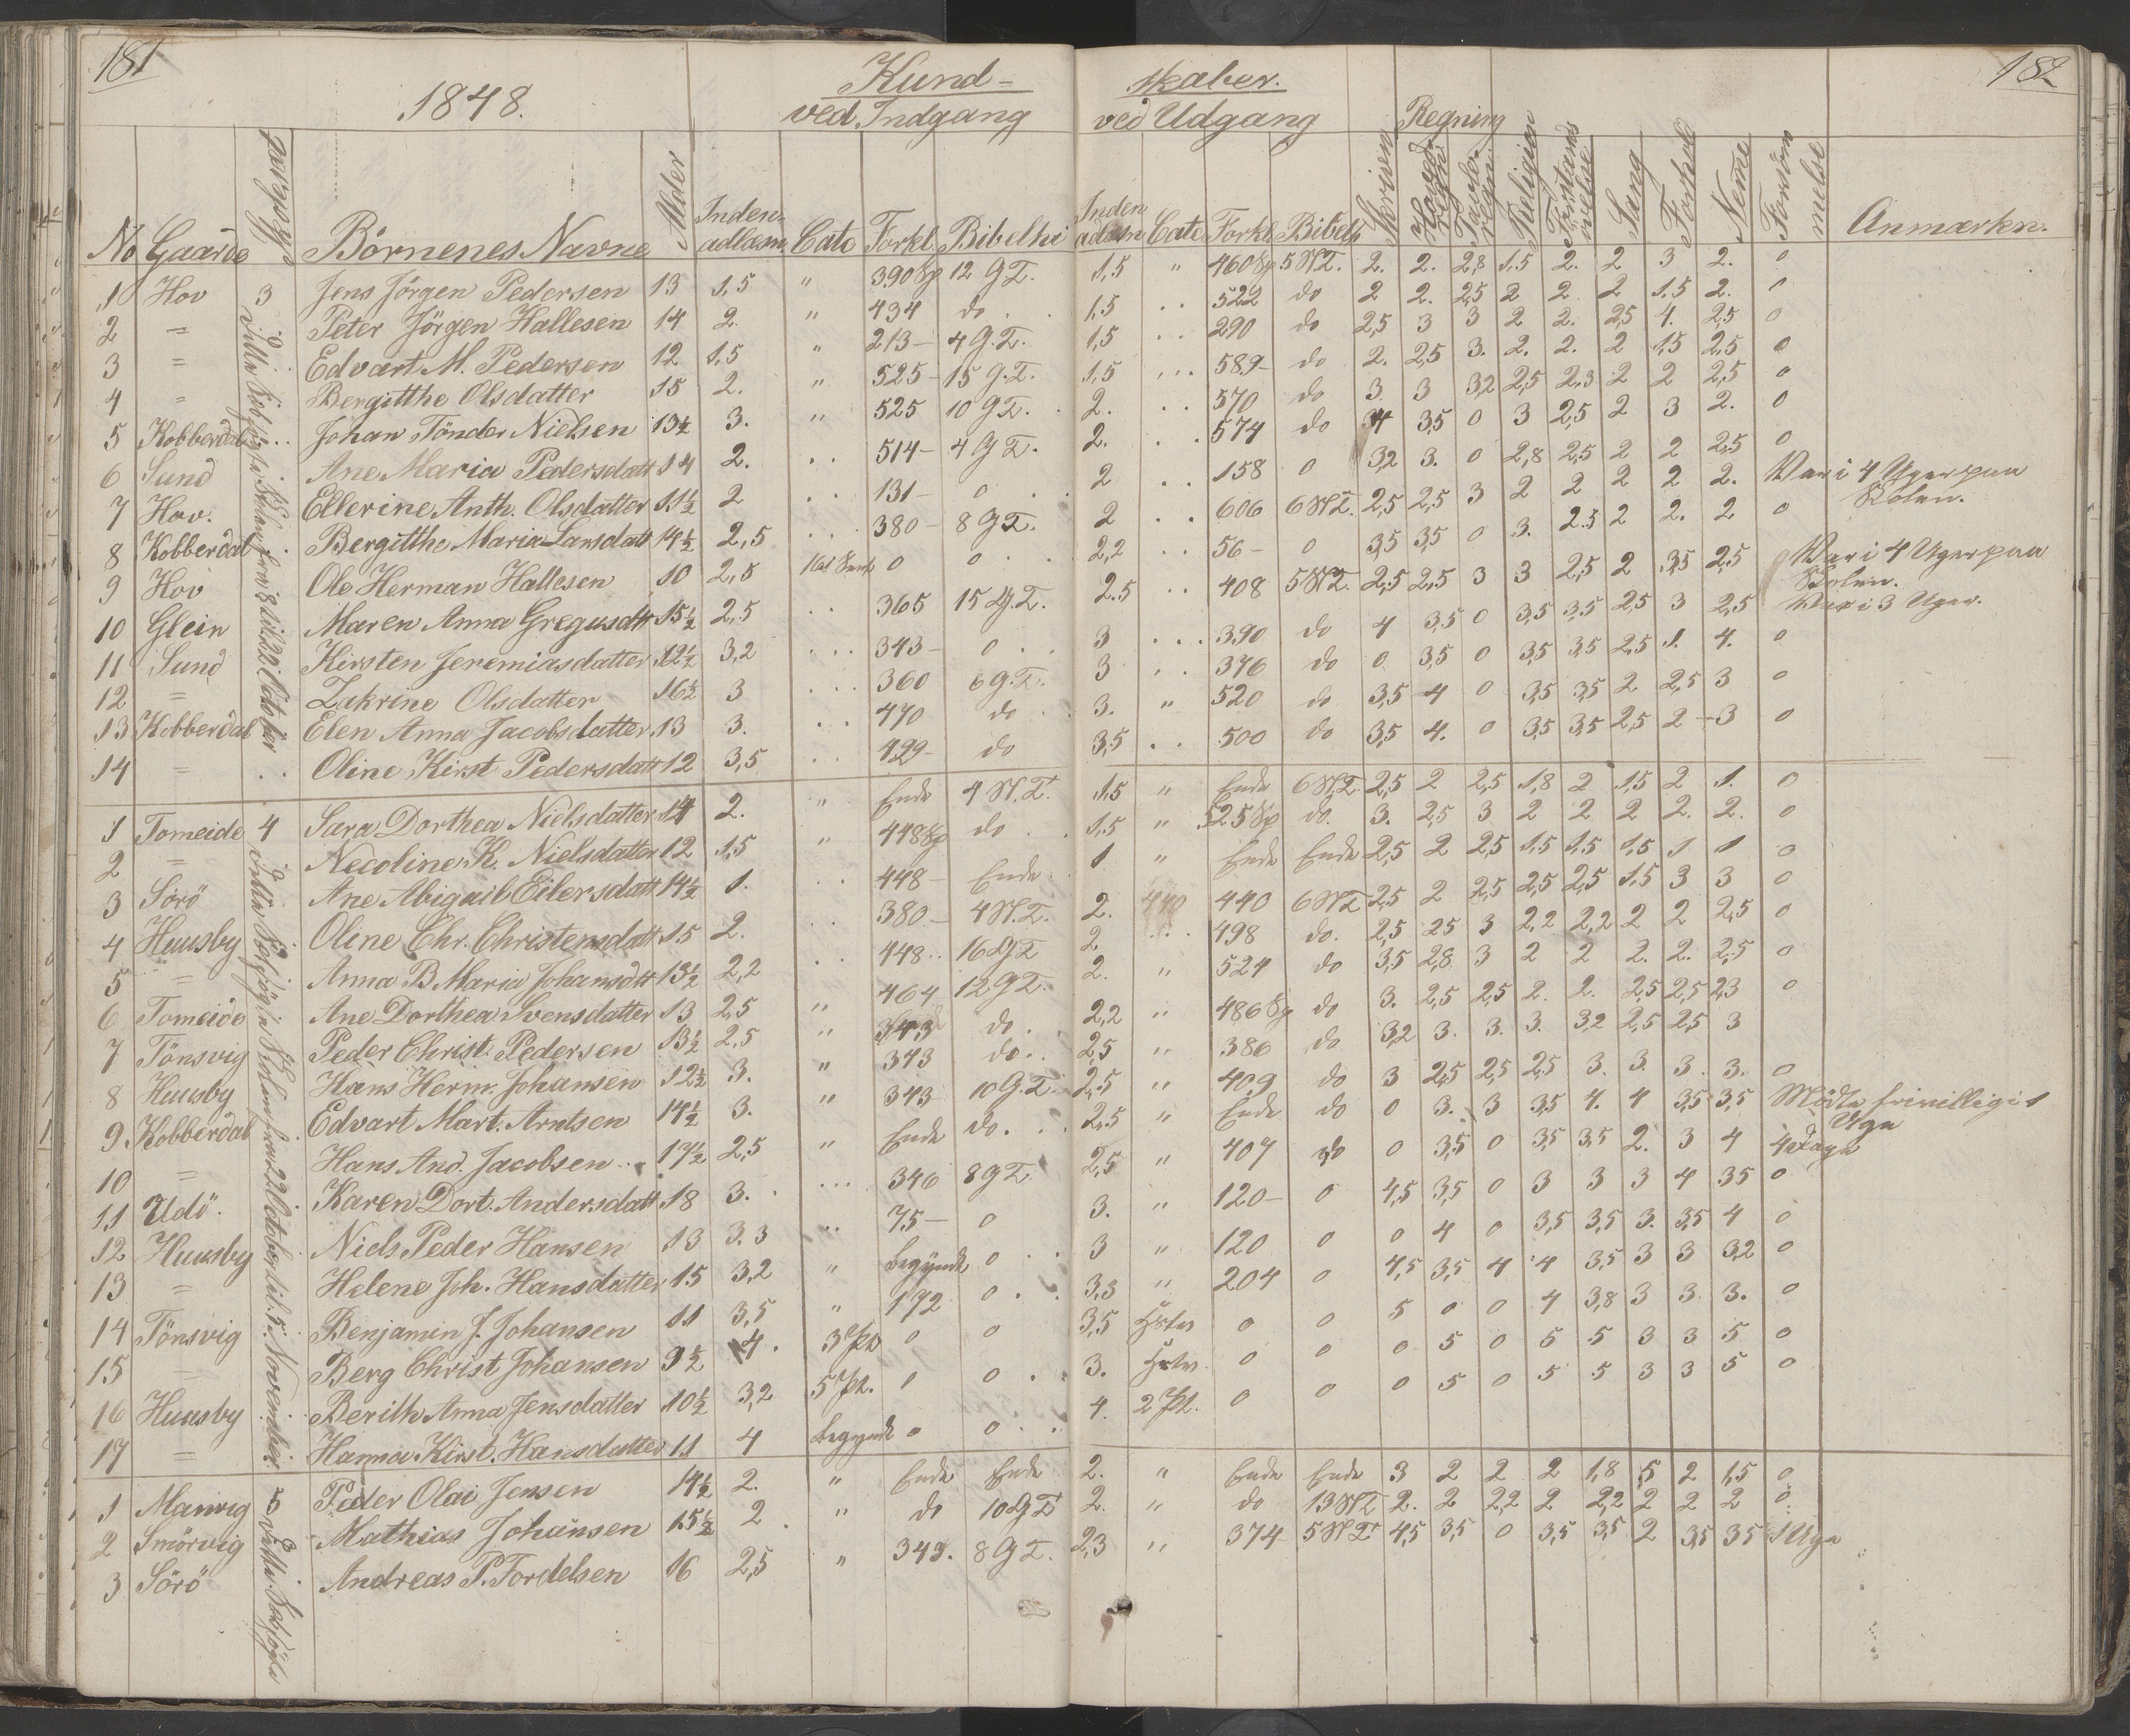 181
1848.
Kund-
ved Indgang
No Gaarde Børnenes Navne Alder Inden-adlæsn. Cate Forkl. Bibelhi
1 Hov 3 Jens Jörgen Pedersen 13 1,5 " 390 Sp 12 G.T.
2 = Peter Jörgen Hallesen 14 2. " 434 do
3 = Edvart M. Pedersen 12 1,5 " 213- 4 G.T.
4 = Bergitthe Olsdatter 15 2. " 525- 15 G.T.
5 Kobberdal Johan Tönder Nielsen 13½ 3. " 525 10 G.T.
6 Sund Ane Maria Pedersdatt 14 2. .. 514- 4 G.T.
7 Hov. Ellerine Anth. Olsdatter 11½ 2 .. 131- 0
8 Kobberdal Bergitthe Maria Larsdatt 14½ 2,5 .. 380- 8 G.T.
9 Hov Ole Herman Hallesen 10 2,8 0 0
10 Glein Maren Anna Gregusdtr 15½ 2,5 .. 365 15 G.T.
11 Sund Kirsten Jeremiasdatter 12½ 3,2 ... 343- 0
12 = Zakrine Olsdatter 16½ 3 ... 360 6 G.T.
13 Kobberdal Elen Anna Jacobsdatter 13 3. .. 470 do
14 = Oline Kirst Pedersdatt 12 3,5 .. 499- do
1 Tomeide 4 Sara Dorthea Nielsdatter 14 2. " Ende 4 N.T.
2 = Necoline K. Nielsdatter 12 1,5 " 448 Sp do
3 Sörö Ane Abigail Eilersdatt 14½ 1. .. 448- Ende
4 Huusby Oline Chr. Christensdatt 15 2. .. 380- 4 N.T.
5 = Anna B. Maria Johansdtr 13½ 2,2 .. 448.. 16 G.T
6 Tomeide Ane Dorthea Svensdatter 13 2,5 " 464 12 G.T.
7 Tönsvig Peder Christ. Pedersen 13½ 2,5 " 343 do
8 Huusby Hans Herm. Johansen 12½ 3. " 343 do
9 Kobberdal Edvart Mart. Arntsen 14½ 3. " 343 10 G.T.
10 = Hans And. Jacobsen 17½ 2,5 " Ende do
11 Udö Karen Dort. Andersdatt 18 3. ... 346 8 G.T.
12 Huusby Niels Peder Hansen 13 3.3 .. 75- 0
13 = Helene Joh. Hansdatter 15 3,2 " begyndt 0
14 Tönsvig Benjamin J. Johansen 11 3,5 " 172 0
15 = Berg Christ Johansen 9½ 4. 3 Pt. 0 0
16 Huusby Berith Anna Jensdatter 10½ 3,2 5 Pt. 0 0
17 = Hanna Kirst. Hansdatter 11 4 begyndt 0 0
1 Marvig 5 Peder Olai Jensen 14½ 2. " Ende Ende
2 Smörvig Mathias Johansen 15½ 2 " do 10 G.T
3 Sörö Andreas P. Fordelsen 16 2,5 " 343. 8 G.T.
182
skaber.
ved Udgang Regning
Inden adlæsn Cate Forkl. Bibelh Skriven Hoved Regn. Tavle-regn. Religion Forstands øvelse Sang Forhold Nemme Forsömmelse Anmærkn.
1,5 " 460 Sp 5 N.T. 2. 2. 2,8 1.5 2. 2 3 2. 0
1,5 .. 522 do 2 2. 2,5 2 2 2 1.5 2. 0
1,5 .. 290 do 2,5 3 3 2 2. 2,5 4. 2,5 0
1,5 ... 589- do 2. 2,5 3. 2. 2. 2 1,5 2,5 0
2. .. 570 do 3. 3 3,2 2,5 2,3 2 2 2,5 0
2. .. 574 do 4 3,5 0 3 2,5 2 3 2. 0
2 .. 158 0 3,2 3. 0 2,8 2,5 2 2 2,5 0
2 .. 606 6 N.T. 2,5 2,5 3 2 2 2 2 2. Var i 4 Uger paa Skolen.
2,2 .. 56- 0 3,5 3,5 0 3. 2.5 2 2. 2 0
2.5 .. 408 5 N.T. 2,5 2,5 3 3 2,5 2 3,5 2,5 Var i 4 Uger paa Skolen.
3 ... 390 do 4 3,5 0 3,5 3,5 2,5 3 2,5 Var i 3 Uger.
3 .. 376 do 0 3,5 0 3,5 3,5 2,5 1. 4. 0
3. " 520 do 3,5 4 0 3,5 3,5 2 2,5 3 0
3,5 .. 500 do 3,5 4. 0 3,5 3,5 2,5 2 - 3 0
1.5 " Ende 6 N.T. 2,5 2 2,5 1,8 2 1,5 2 1. 0
1,5 " 525 Sp do. 3. 2,5 3 2 2 2 2. 2. 0
1 " Ende Ende 2,5 2 2,5 1.5 1.5 1,5 1 1 0
2. 440 440 6 N.T 2,5 2 2,5 2,5 2,5 1.5 3 3 0
2 ... 498 do. 2,5 25 3 2,2 2,2 2 2 2,5 0
2. " 524 do 3,5 2,8 3 2 2 2. 2. 2,5 0
2,2 " 486 Sp do 3. 2,5 2,5 2. 2. 2,5 2,5 2,3 0
2,5 " 386 do 3,2 3. 3. 3. 3,2 2,5 2,5 3
2,5 " 409 do 3 2,5 2,5 2,5 3. 3. 3. 3. 0
2,5 " Ende do 0 3. 3 3,5 4. 4 3,5 3,5 Mödte frivillig i 1 Uge
2,5 " 407 do 0 3,5 0 3,5 3,5 2. 3 4 4 Dage
3. " 120- 0 4,5 3,5 0 3 3 3 4 35 0
3 " 120 0 0 4 0 3,5 3,5 3. 3,5 4 0
3,3 " 204 0 4,5 3,5 4 4 3,5 3 3 3,2 0
3,5 0 0 5 0 0 4 3,8 3 3 3. 0
3. 0 0 0 5 0 5 5 3 3 5 0
4. 2 Pt. 0 0 0 5 0 5 5 3 3 5 0
2. " Ende Ende 3 2 2 2 1,8 5 2 1,5 0
2. " do 13 N.T 2. 2 2,2 2 2,2 2 2 2 0
2,3 " 374 5 N.T 4,5 3,5 0 3,5 3,5 2 3,5 35 1 Uge